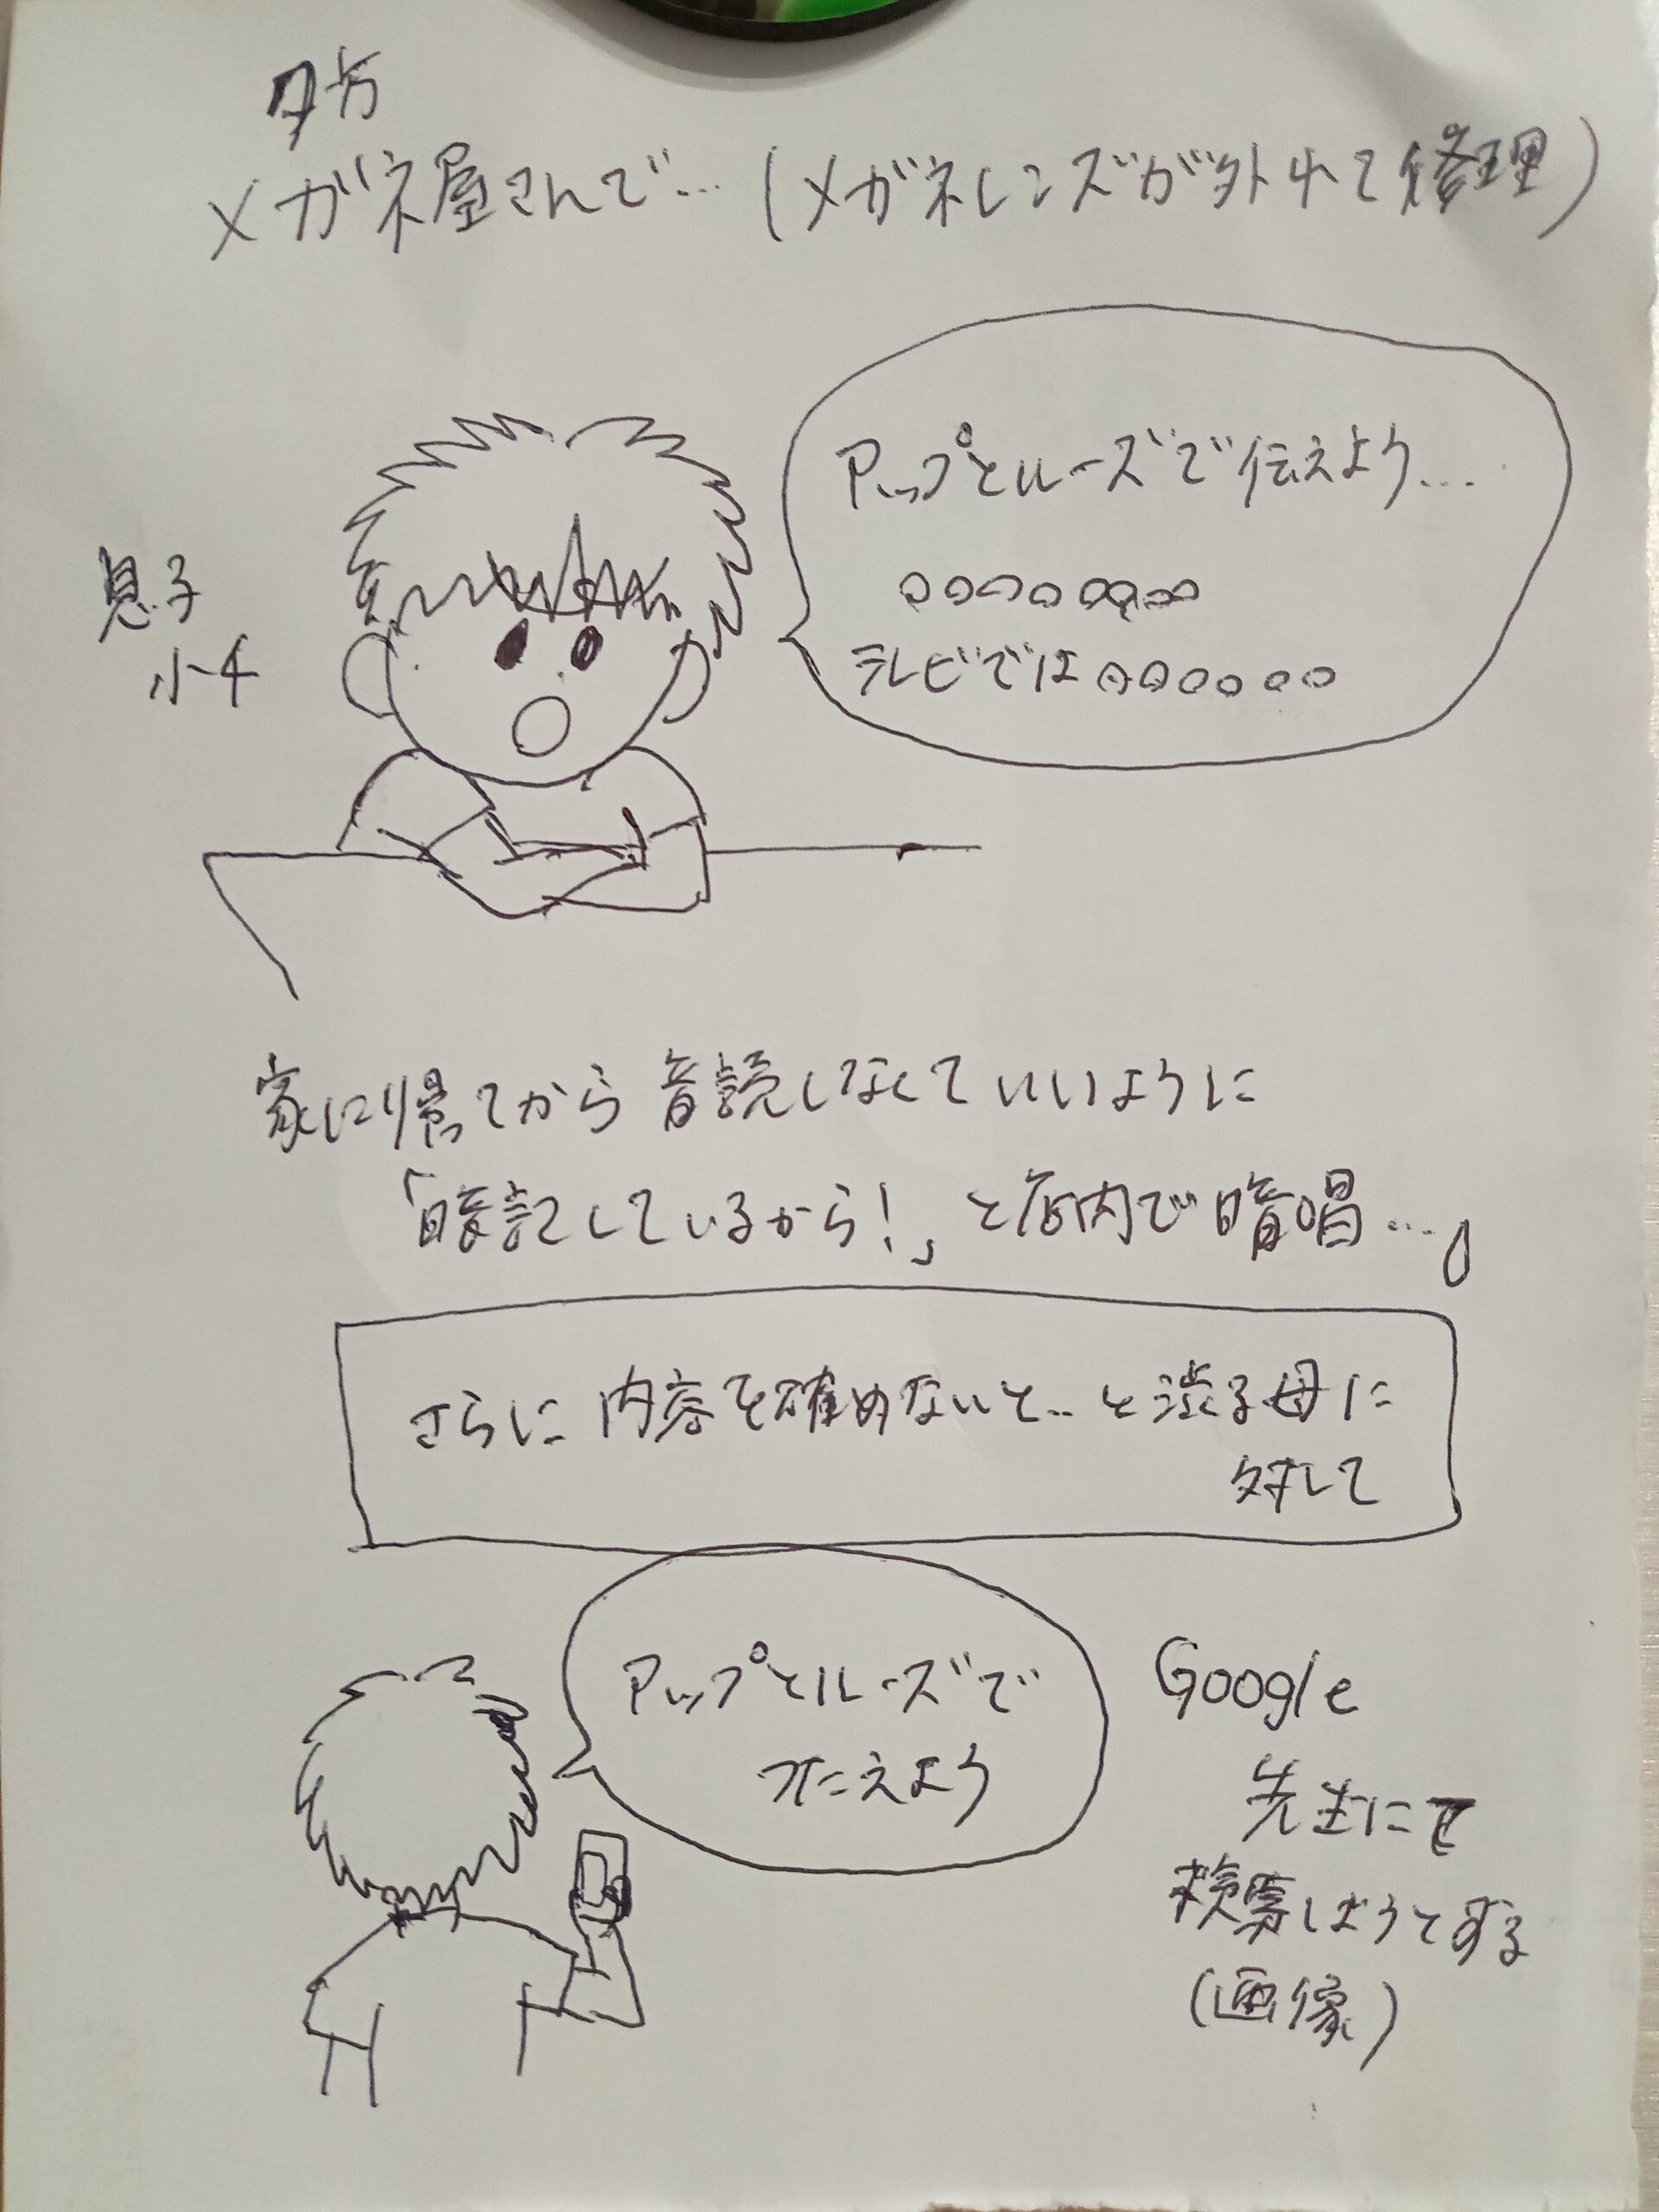 夕方
メガネ屋さんで…(メガネレンズが外れて修理)
アップとルーズで伝えよう…
○○○○○○○○
テレビでは○○○○○○
息子
小4
家に帰ってから音読しなくていいように
「暗記しているから!」と店内で暗唱…。
さらに内容を確めないと…と渋る母に
対して
アップとルーズで
伝えよう
Google
先生にて
検索しようとする
(画像)